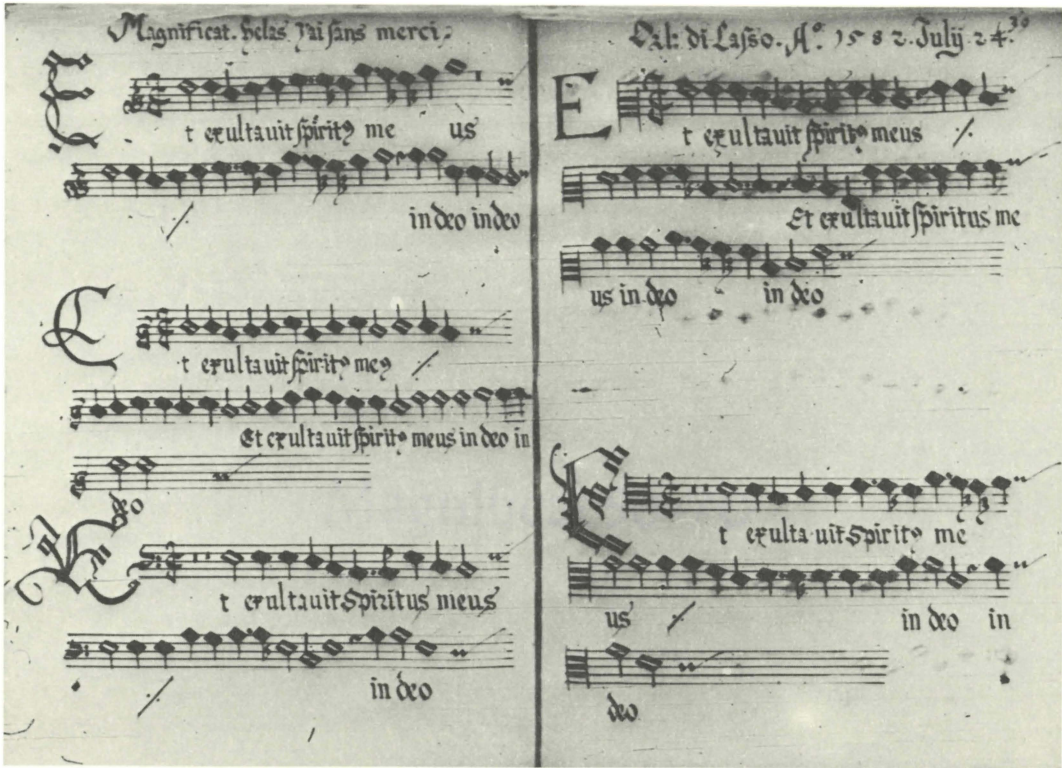 Magnificat. Helas j'ai sans merci.
Et exultavit spiritꝰ me us
in deo in deo
Et exultavit spiritꝰ meꝰ
Et exultavit spiritꝰ meus in deo in
deo
Et exultavit Spiritus meus
in deo
Orl: di Lasso. Aº. 1582. Julij 24.
30
Et exultavit spiritꝰ meus
Et exultavit spiritus me
us in deo in deo
Et exultavit Spiritꝰ me
us in deo in
deo